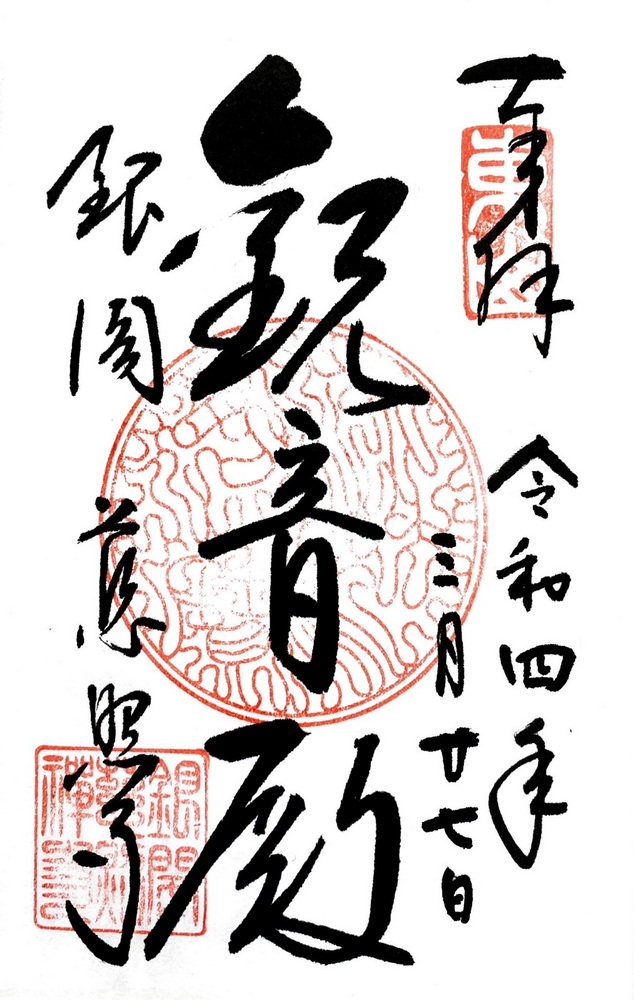 奉拝
東山
令和四年
三月廿七日
観音殿
銀閣
慈照寺
銀閣
慈照
禅寺